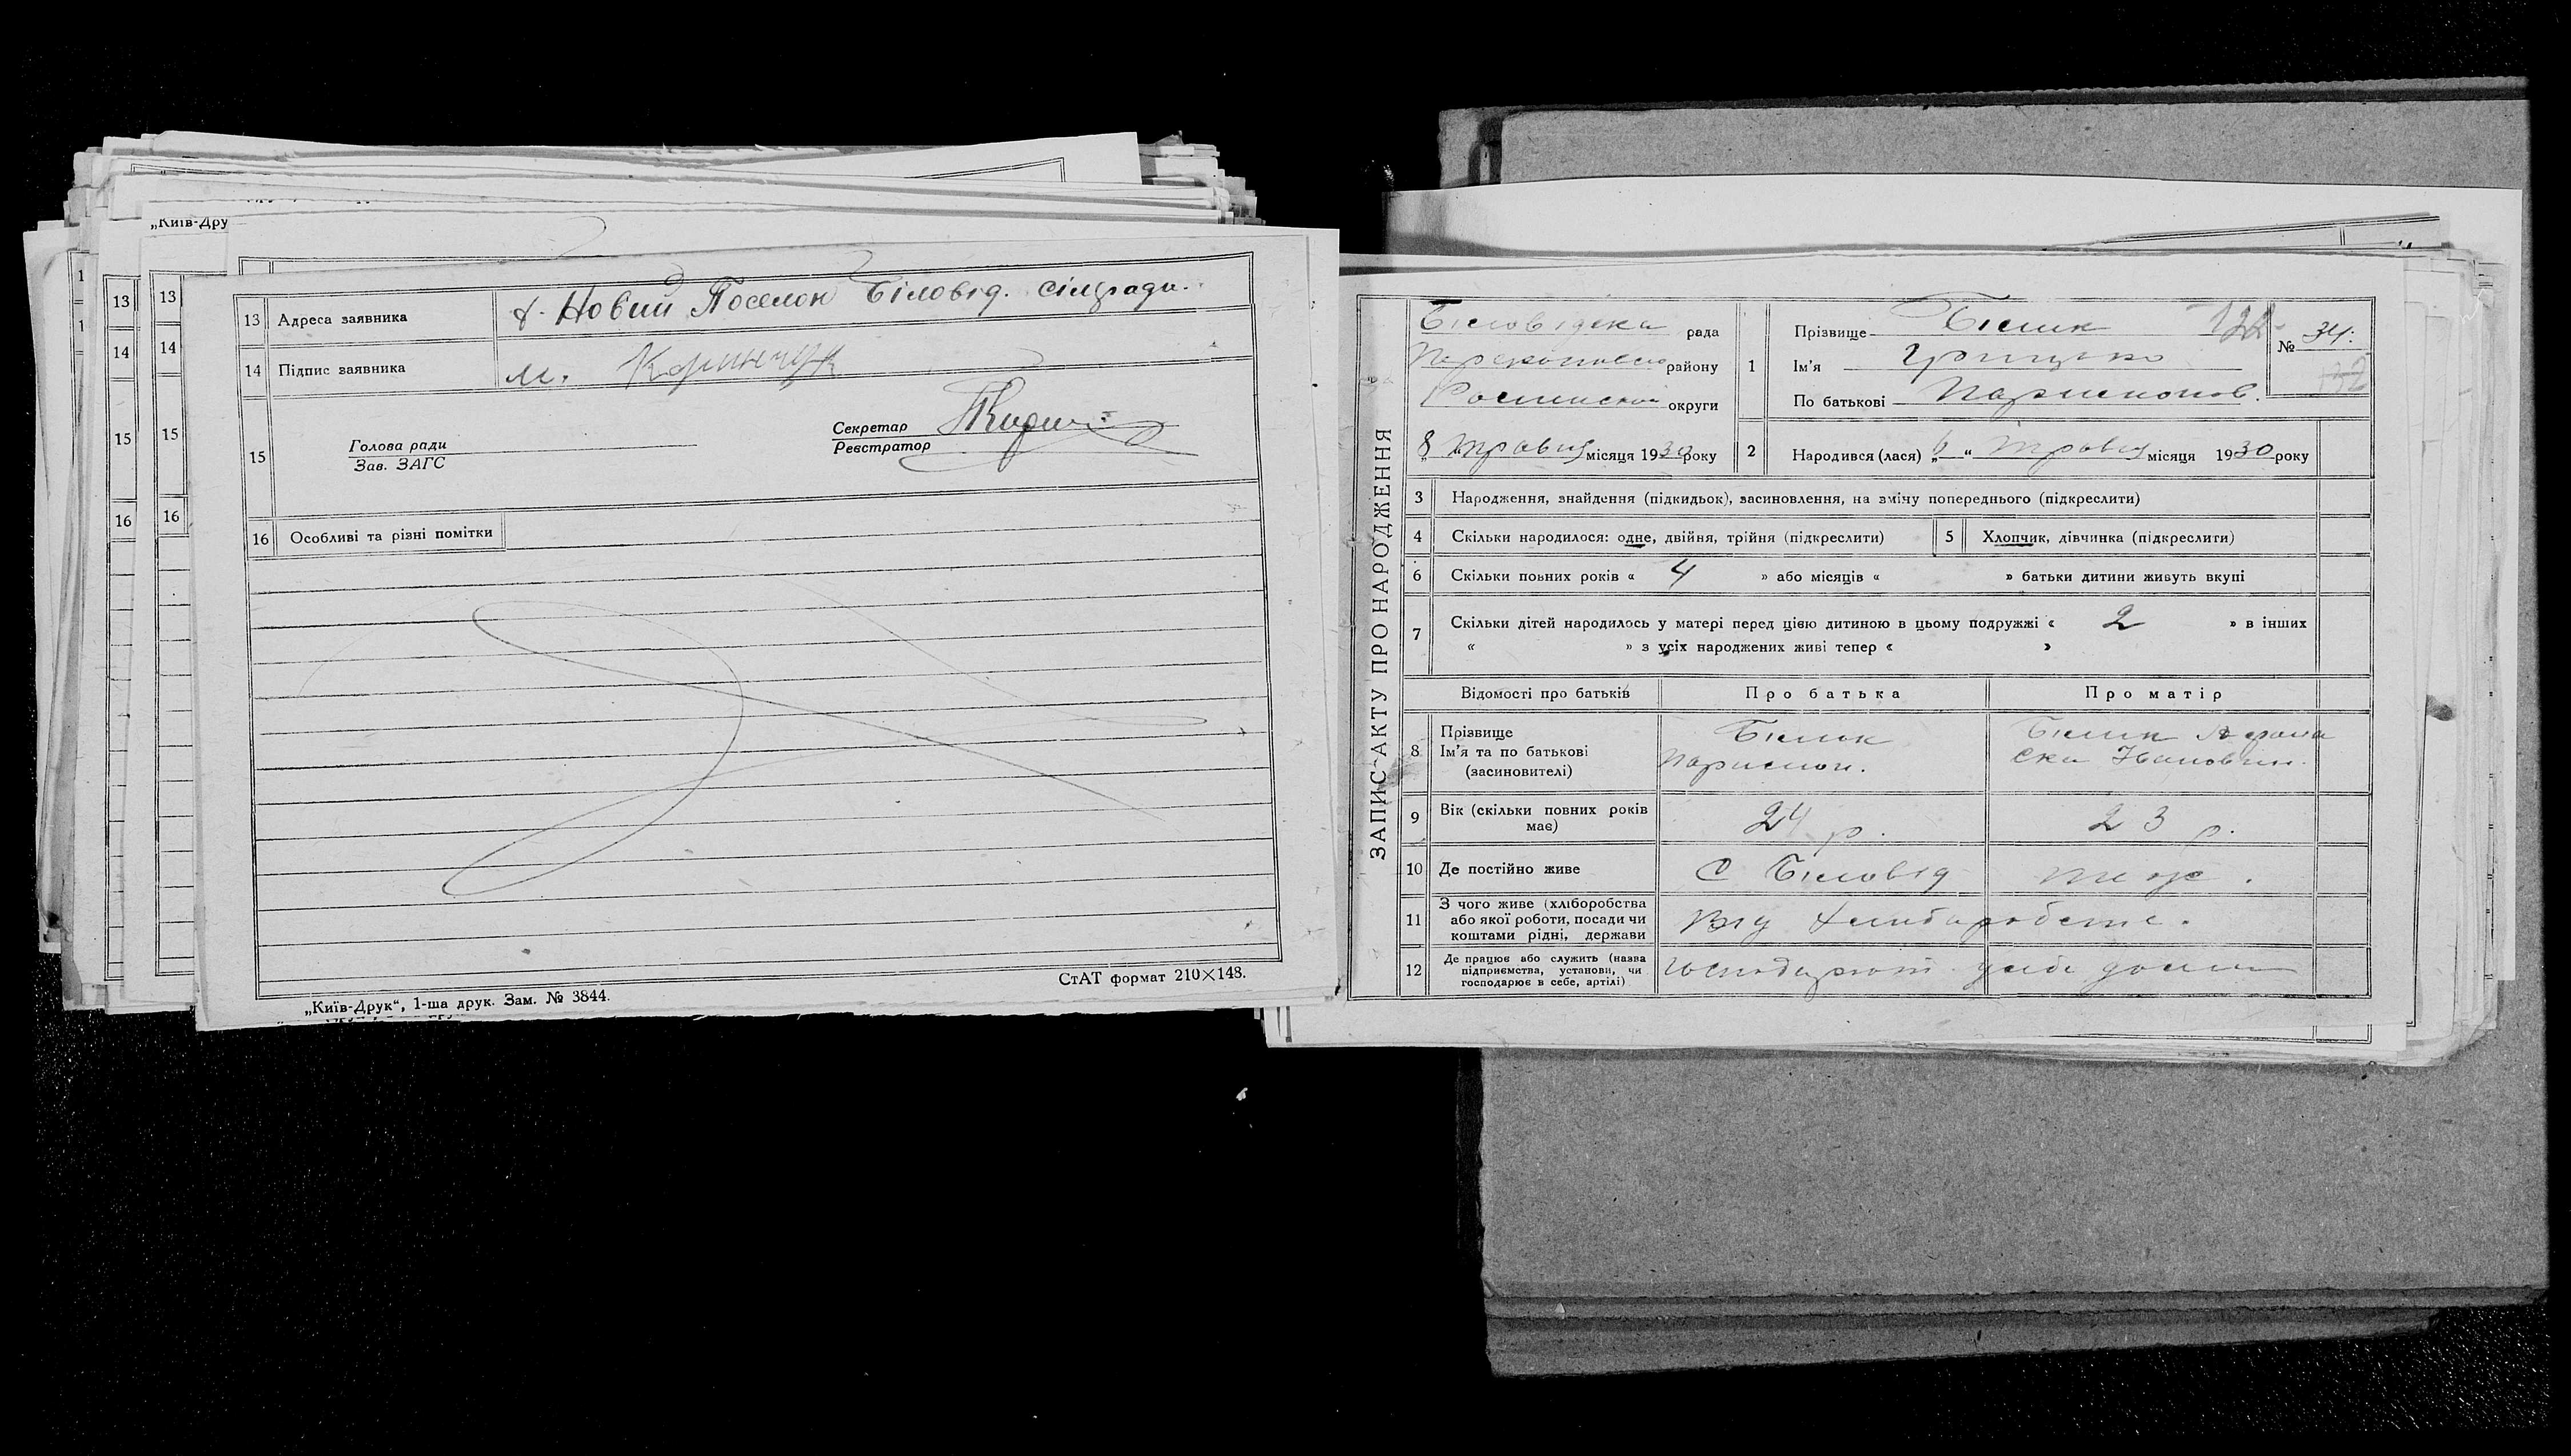 „Київ-Дру
13 Адреса заявника х. Новий Поселок Біловід. сільради.
14 Підпис заявника М.
15
Голова ради
Зав. ЗАГС
Секретар
Реєстратор
16 Особливі та різні помітки
„Київ-Друк“, 1-ша друк. Зам. № 3844.
СтАТ формат 210×148.
13 13
14 14
15 15
16 16
ЗАПИС АКТУ ПРО НАРОДЖЕННЯ
Біловідска рада
району
округи
8 травця місяця 1930 року
1 Прізвище Білик
Ім'я Грицько
По батькові Парименов.
№ 34.
132
2 Народився (лася) „6“ травця місяця 1930 року
3 Народження, знайдення (підкидьок), засиновлення, на зміну попереднього (підкреслити)
4 Скільки народилося: одне, двійня, трійня (підкреслити) 5 Хлопчик, дівчинка (підкреслити)
6 Скільки повних років « 4 » або місяців « » батьки дитини живуть вкупі
7 Скільки дітей народилось у матері перед цією дитиною в цьому подружжі « 2 » в інших
« » з усіх народжених живі тепер « »
Відомості про батьків Про батька Про матір
8 Прізвище
Ім'я та по батькові
(засновителі)
Білик
Білик
9 Вік (скільки повних років
має)
24 р. 23 р.
10 Де постійно живе С Біловід теж.
11 З чого живе (хліборобства
або якої роботи, посади чи
коштами рідні, держави
Від
12 Де працює або служить (назва
підприємства, установи, чи
господарює в себе, артілі)
дома